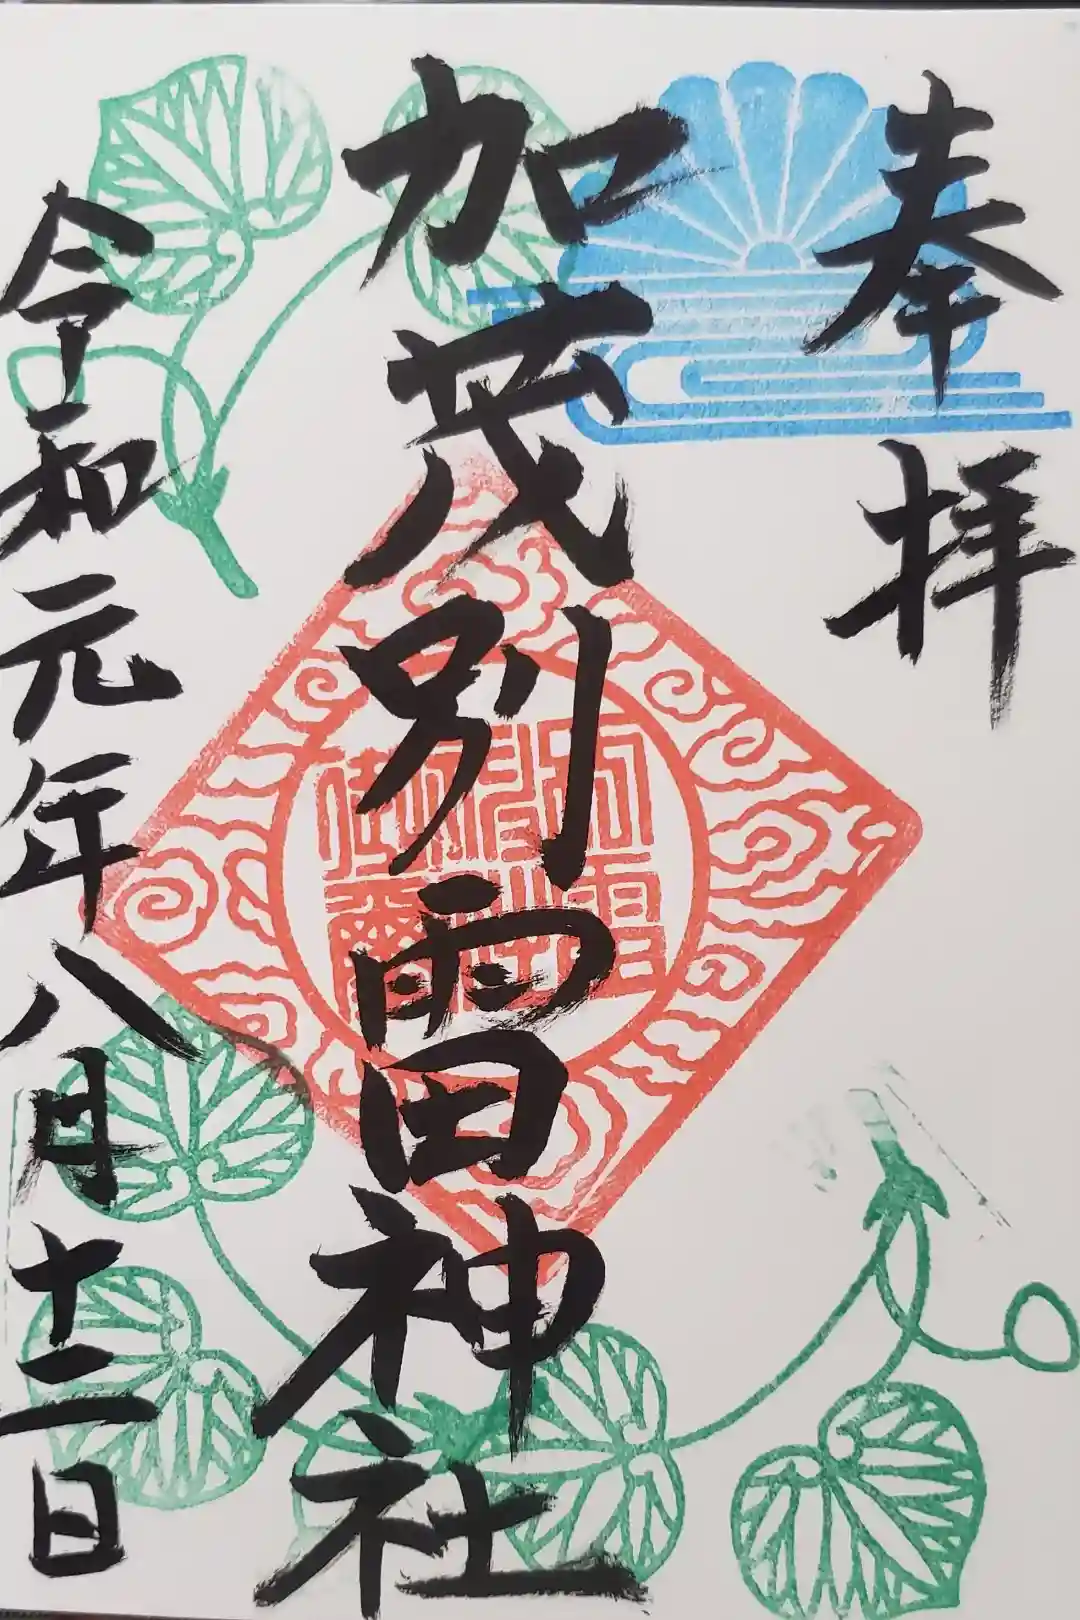 奉拝
加茂別雷神社
令和元年八月十二日